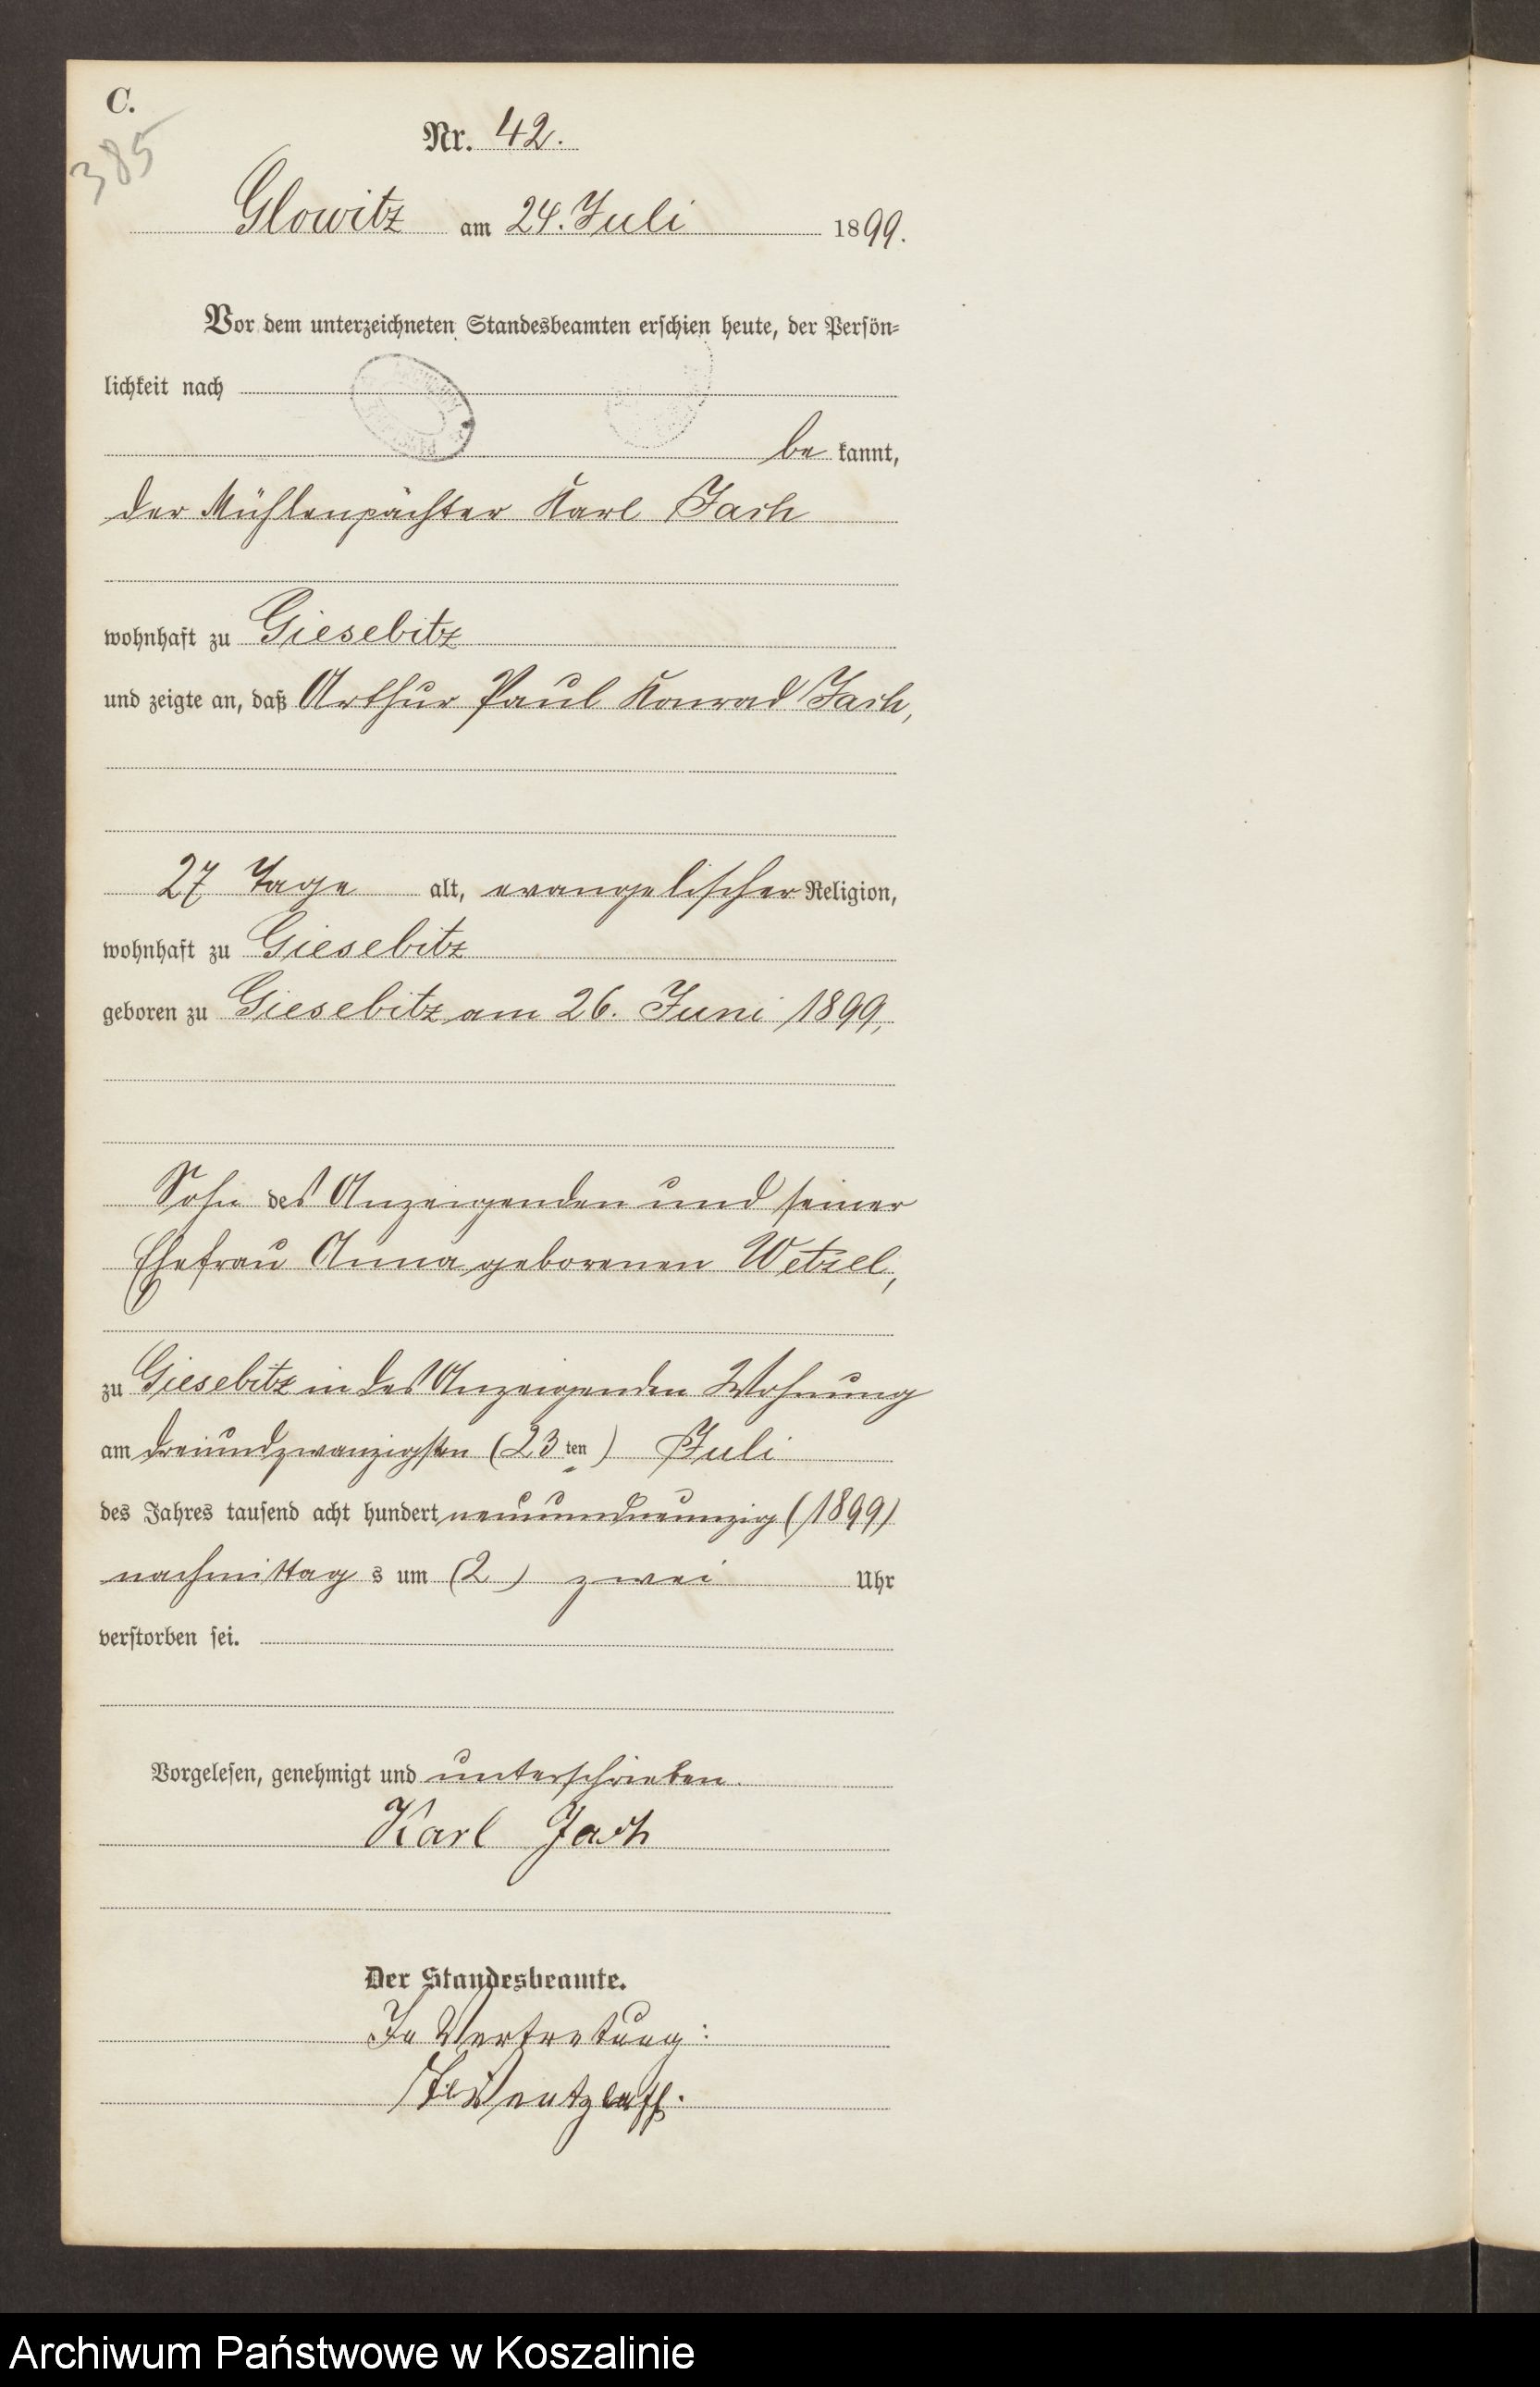 C.
385
Nr. 42.
Glowitz am 24. Juli 1899.
Vor dem unterzeichneten Standesbeamten erschien heute, der Persön-
lichkeit nach
be kannt,
der Mühlenpächter Karl Jach
wohnhaft zu Giesebitz
und zeigte an, daß Arthur Paul Konrad Jach,
27 Tage alt, evangelischer Religion,
wohnhaft zu Giesebitz
geboren zu Giesebitz am 26. Juni 1899,
Sohn des Anzeigenden und seiner
Ehefrau Anna geborenen Wetzel,
zu Giesebitz in des Anzeigenden Wohnung
am dreiundzwanzigsten (23ten) Juli
des Jahres tausend acht hundert neunundneunzig (1899)
nachmittag s um (2) zwei Uhr
verstorben sei.
Vorgelesen, genehmigt und unterschrieben.
Karl Jach
Der Standesbeamte.
In Vertretung:
Wentzlaff.
Archiwum Państwowe w Koszalinie